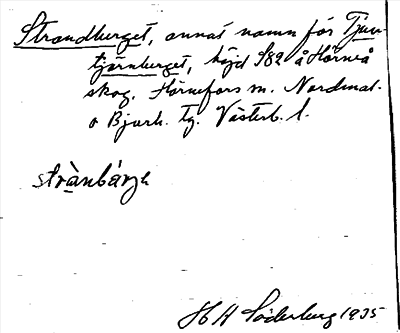 Strandberget, annat namn för Tjuv-
tjärnberget, höjd 982 å Hörneå
skog, Hörnefors m. Nordmal.
o Bjurh. tg. Västerb. l.
strànbárjə
H H Söderberg 1935